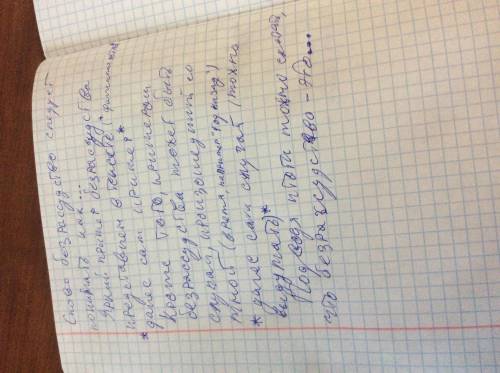 Слово безрассудство следует
понимать как...
Яркий пример безрассудства
представлен в тексте *фамилия и.о.
* далее сам пример *
Кроме того примером
безрассудства может быть
случай, произошедший со
мной (время, например "год назад")
* далее сам случай (можно
выдумать) *
Подводя итоги можно сказать,
что безрассудство - это...